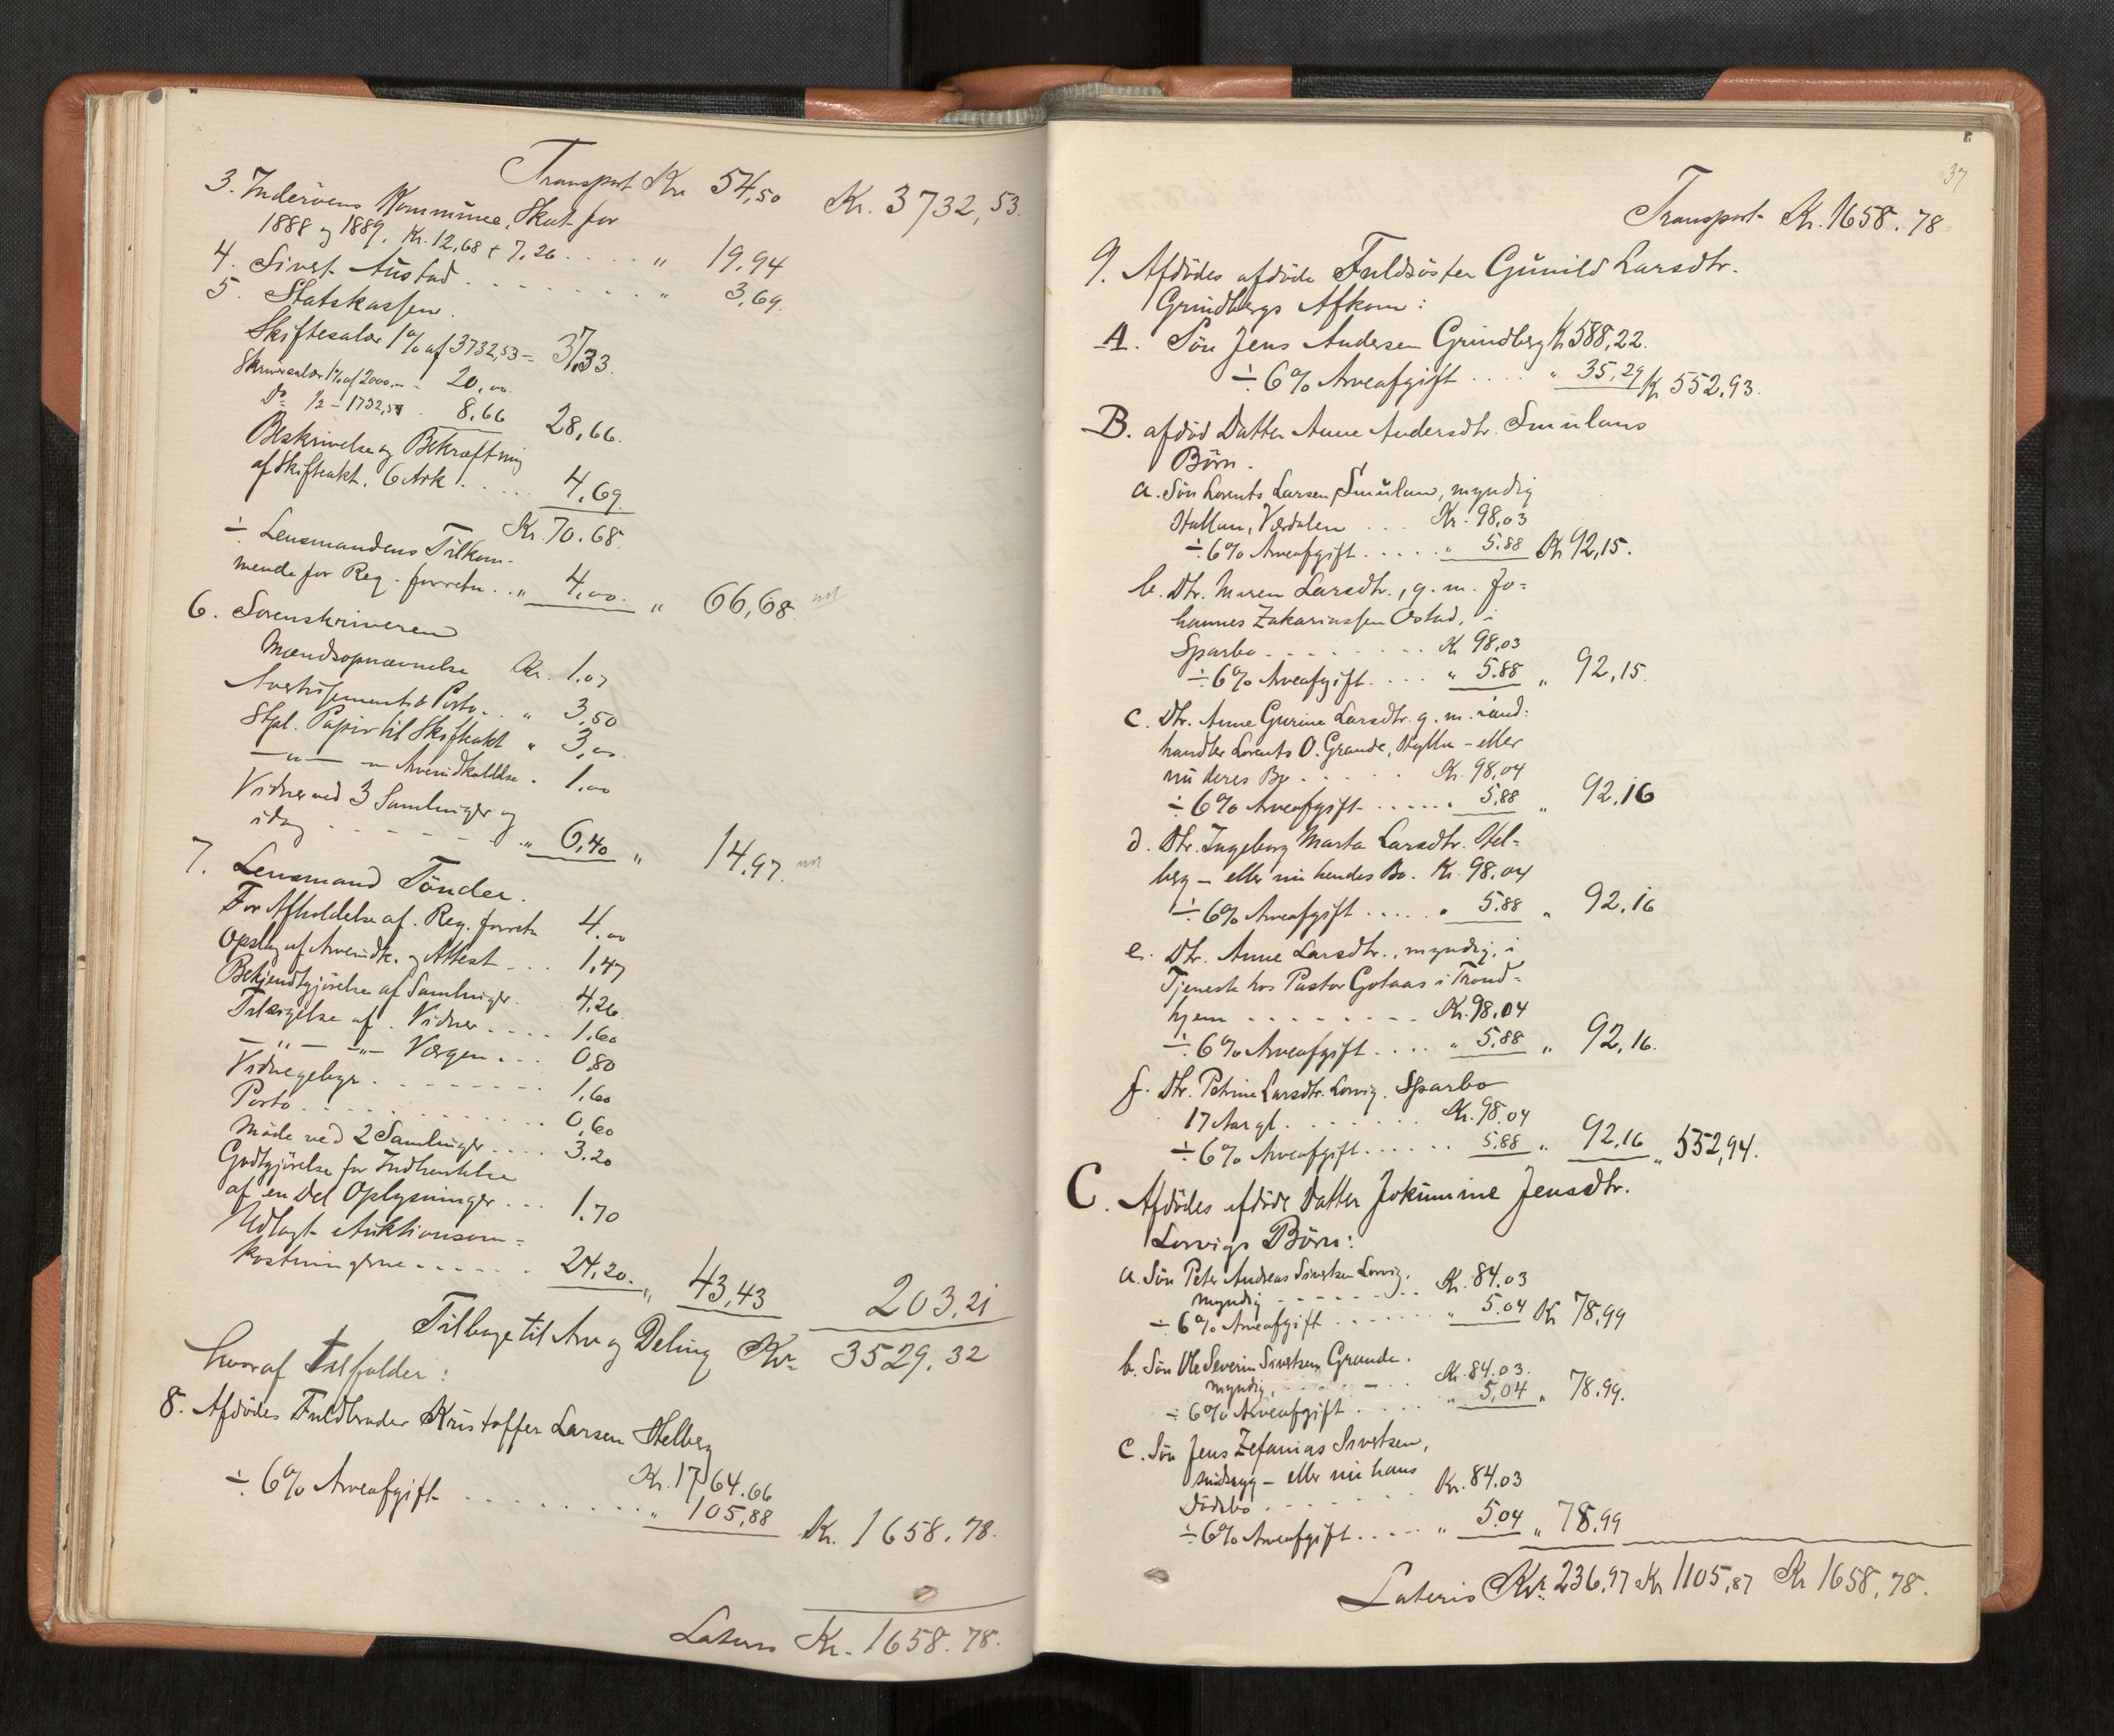 Transport Kr 54,50 Kr. 3732,53.
3. Inderöens Kommune, Skat for
1888 og 1889, Kr. 12,68 + 7,26 . . . . „ 19,94
4. Sivert Austad . . . . . . . „ 3,69.
5. Statskassen.
Skiftesalær 1% af 3732,53 = 37,33
Skriversalær 1% af 2000 - 20,00
Do ½ - 1732,53 - 8,66 28,66.
Beskrivelse og Bekræftning
af Skifteakt, 6 Ark . . . . 4,69.
Kr. 70.68.
÷ Lensmandens Tilkom-
mende for Reg. forretn. . „ 4,00. „ 66,68
6. Sorenskriveren
Mændsopnævnelse Kr. 1.07
Avertissement & Porto . . „ 3,50
Stpl. Papir til Skifteakt „ 3,00
— „ — „ Arveindkaldelse . 1,00
Vidner ved 3 Samlinger og
idag . . . . . . „ 6,40 „ 14,97.
7. Lensmand Tönder.
For Afholdelse af Reg. forretn 4.00
Opslag af Arveindk. og Attest . . . 1,47
Bekjendtgjörelse af Samlinger . 4,26
Tilsigelse af Vidner . . . . 1,60
— „ — „ — Værgen . . . 0,80
Vidnegebyr . . . . . . . . 1,60
Porto . . . . . . . . . . 0,60
Möde ved 2 Samlinger . . . . 3.20
Godtgjörelse for Indhentelse
af en Del Oplysninger . . . 1.70
Udlagt Auktionsom=
kostningerne . . . . . . 24,20. „ 43,43 203,21
Tilbage til Arv og Deling Kr. 3529,32
hvoraf tilfalder:
8. Afdödes Fuldbroder Kristoffer Larsen Stelberg
Kr. 1764.66
÷ 6% Arveafgift . . . . . . . . „ 105,88 Kr. 1658.78.
Lateris Kr. 1658.78.
37
Transport Kr. 1658.78
9. Afdödes afdöde Fuldsöster Gunild Larsdtr.
Grindbergs Afkom:
A. Sön Jens Andersen Grindberg Kr 588,22.
÷ 6% Arveafgift . . . . „ 35,29 Kr 552,93.
B. afdöd Datter Anne Andersdtr. Smulans
Börn.
a. Sön Lorents Larsen Smulan, myndig
Stallen, Værdalen . . . Kr. 98,03
÷ 6% Arveafgift . . . . . „ 5.88 Kr 92,15.
b. Dtr. Maren Larsdtr., g. m. Jo=
hannes Zakariassen Ostad, i
Sparbo . . . . . . . . Kr 98,03
÷ 6% Arveafgift . . . . „ 5.88 „ 92,15.
c. Dtr. Anne Gurine Larsdtr. g. m. Land:
handler Lorents O. Grande, Hylla - eller
nu deres Bo . . . . . Kr. 98,04
÷ 6% Arveafgift . . . . . . 5,88 „ 92,16
d. Dtr. Ingeborg Marta Larsdtr. Stel=
berg - eller nu hendes Bo. Kr. 98,04
÷ 6% Arveafgift . . . . . „ 5.88 „ 92,16
e. Dtr. Anne Larsdtr., myndig, i
Tjeneste hos Pastor Gotaas i Trond=
hjem . . . . . . . . Kr. 98,04
÷ 6% Arveafgift . . . . „ 5.88 „ 92,16.
f. Dtr. Petrine Larsdtr. Lorvig. Sparbo
17 Aar gl. . . . . . . Kr. 98,04
÷ 6% Arveafgift . . . . . . 5.88 „ 92,16 „ 552,94.
C. Afdödes afdöde Datter Jokumine Jensdtr.
Lorvigs Börn:
a. Sön Peter Andreas Sivertsen Lorvig.
myndig . . . . . . . . Kr. 84.03
÷ 6% Arveafgift . . . . . . . „ 5.04 Kr 78,99
b. Sön Ole Severin Sivertsen Grande.
myndig, . . . . . . . . Kr. 84.03.
÷ 6% Arveafgift . . . . . „ 5,04 „ 78,99.
c. Sön Jens Zefanias Sivertsen,
sindssyg - eller nu hans
Dödsbo . . . . . . . Kr. 84.03
÷ 6% Arveafgift . . . . . „ 5.04 „ 78,99
Lateris Kr. 236,97 Kr 1105,87 Kr 1658,78.